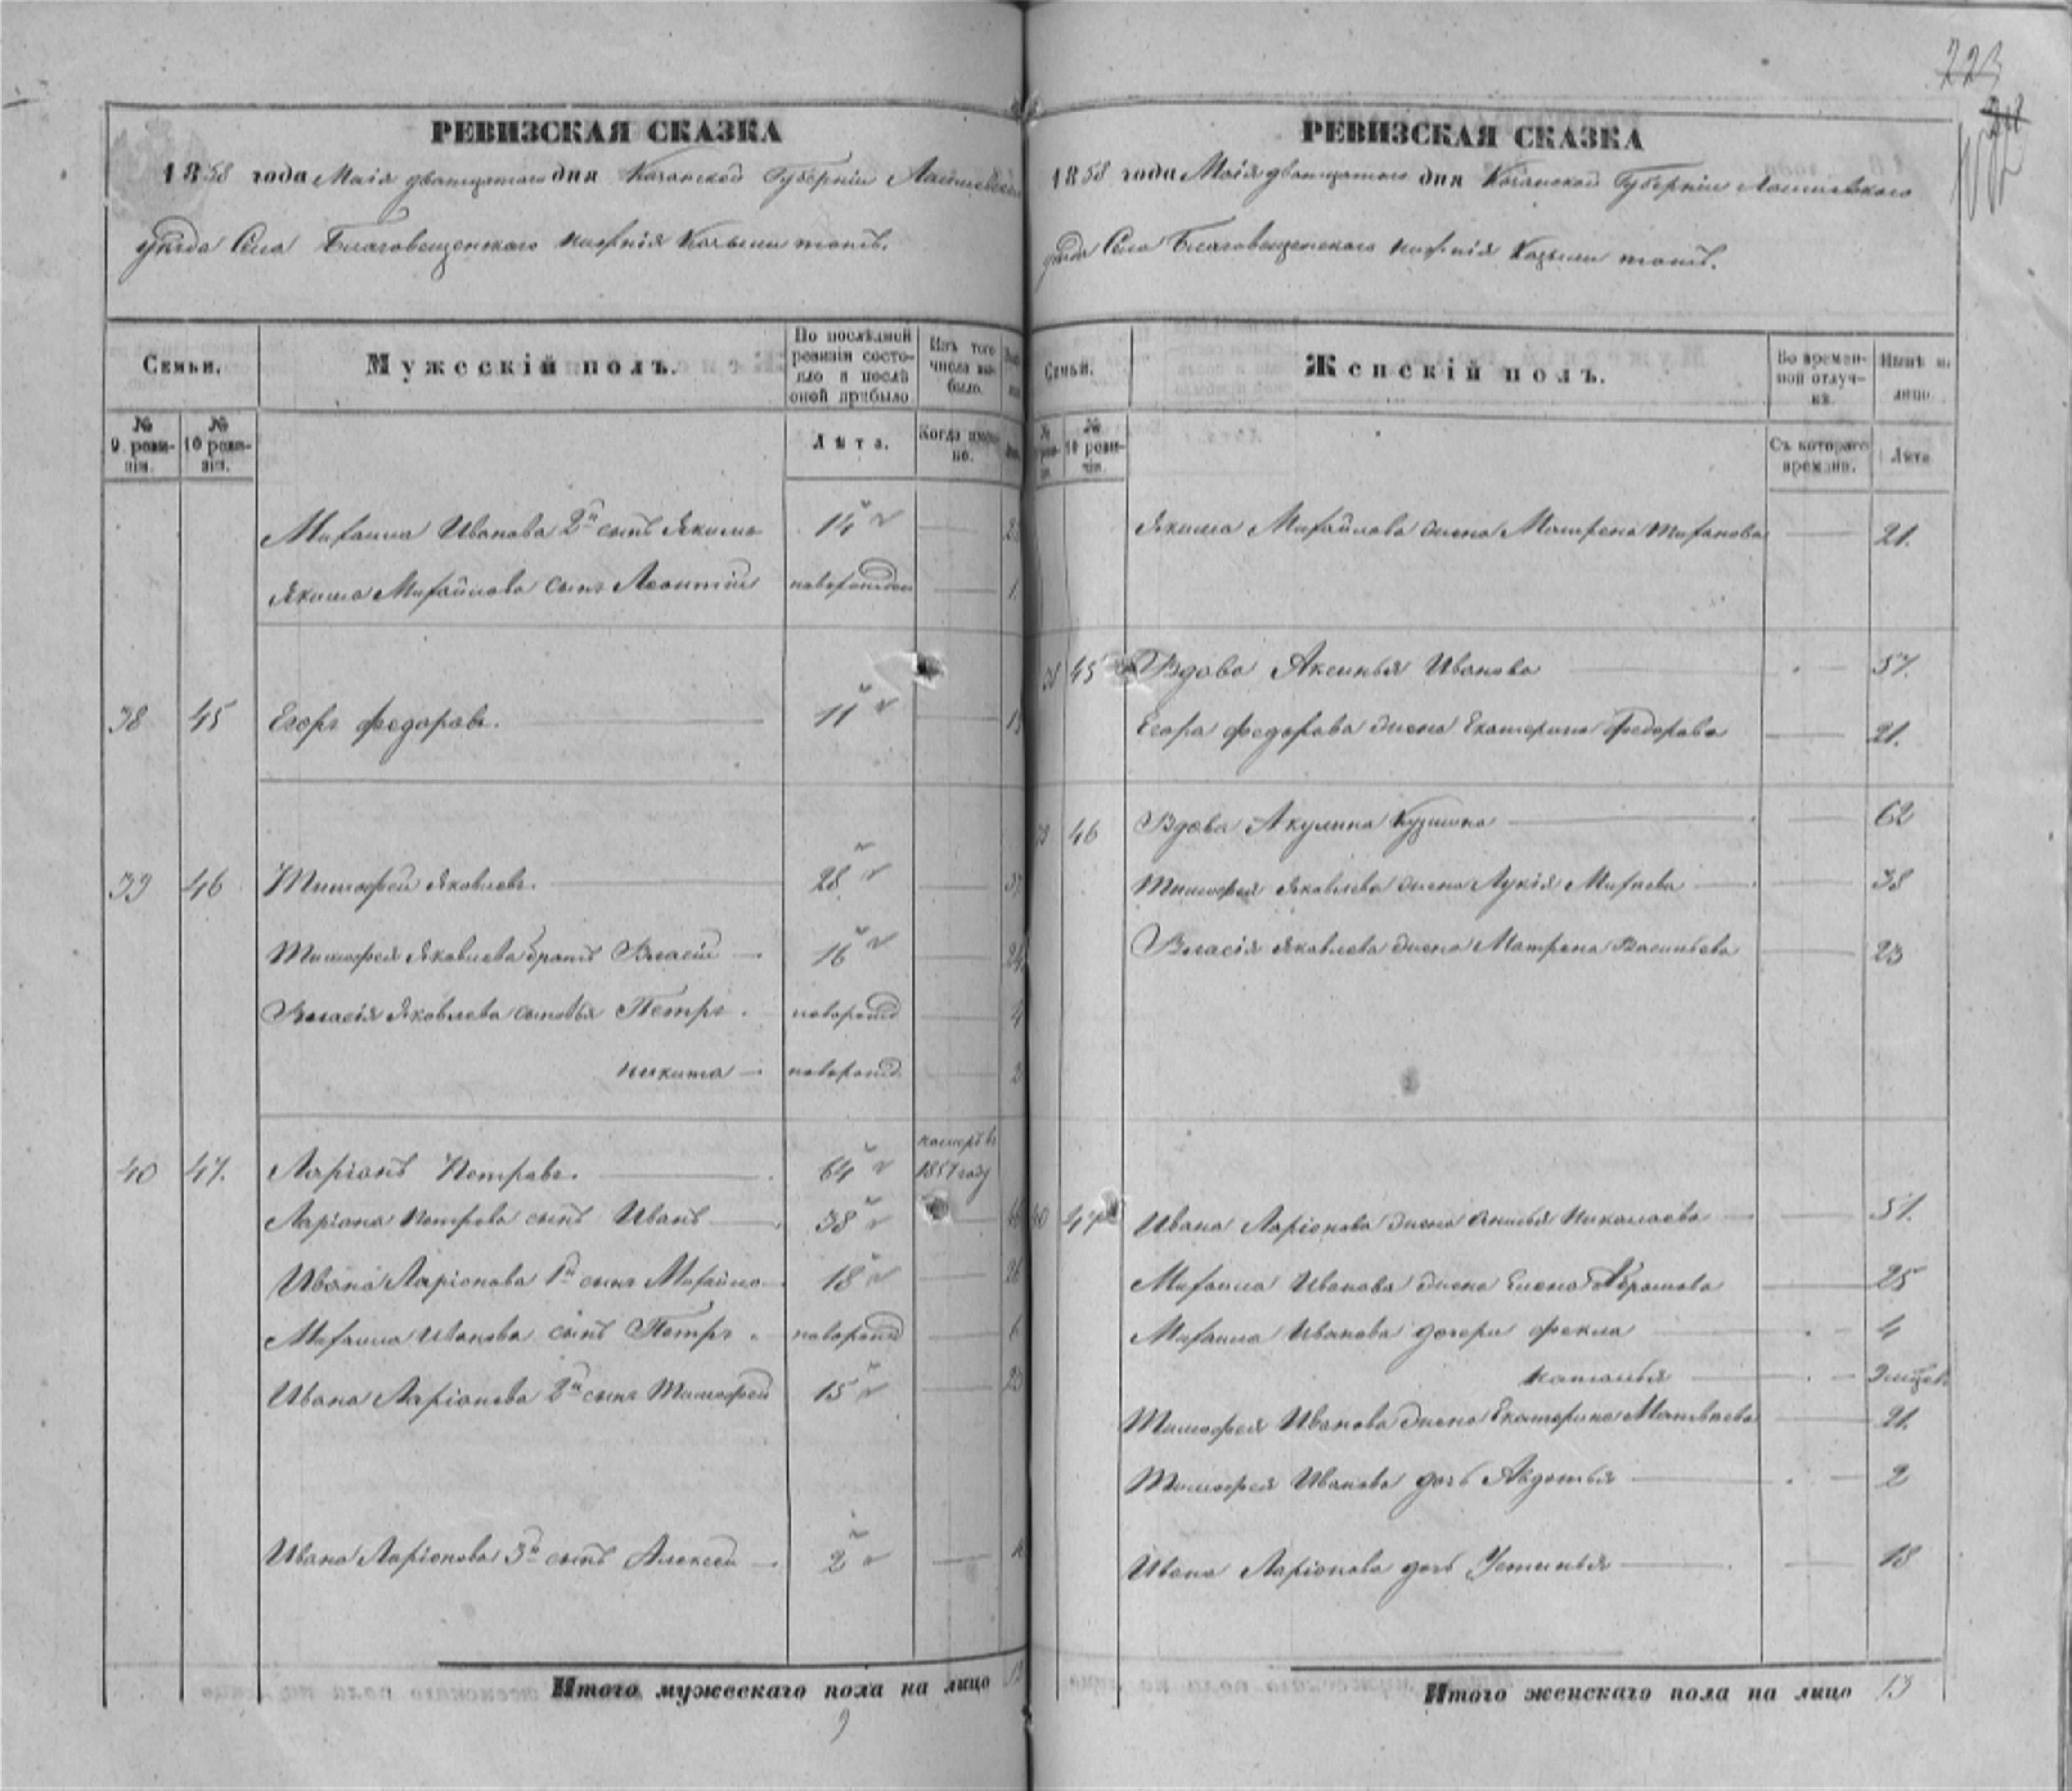 223
РЕВИЗСКАЯ СКАЗКА
1858 года Маія дватцатаго дня Казанской Губерніи Лаишевскаго
уѣзда Села Благовещенскаго нижнія Козыли тожъ.
Семьи.
Мужескій полъ.
По послѣдней ревизіи состояло и послѣ оной прибыло
Изъ того числа выбыло.
№ 9 ревизіи.
№ 10 ревизіи.
Лѣта.
Когда именно.
Михаила Иванова 2й сынъ Якимъ 14
Якима Михайлова сынъ Леонтій новорожден 1.
38 45 Егоръ Федоровъ. 11
39 46 Тимофей Яковлевъ. 28
Тимофея Яковлева братъ Власій 16 24
Власія Яковлева сыновья Петръ новорожд 4
никита новорожд
40 47. Ларіонъ Петровъ. 64 1857 году
Ларіона Петрова сынъ Иванъ 38
Ивана Ларіонова 1й сынъ Михайло 18 26
Михаила Иванова сынъ Петръ новорожд 6
Ивана Ларіонова 2й сынъ Тимофей 15
Ивана Ларіонова 3й сынъ Алексей 2
Итого мужескаго пола на лицо
9
РЕВИЗСКАЯ СКАЗКА
1858 года Маія дватцатаго дня Казанской Губерніи Лаишевскаго
уѣзда Села Благовещенскаго нижнія Козыли тожъ.
Семьи.
Женскій полъ.
Во временной отлучкѣ.
Нынѣ на лицо.
№ 10 ревизіи.
Съ котораго времяни.
Лѣта
Якима Михайлова жена Матрена 21.
45 Вдова Аксинья Иванова 57.
Егора Федорова жена Екатерина Федорова 21.
46 Вдова Акулина Кузмина 62
Тимофея Яковлева жена Лукія 38
Власія Яковлева жена Матрена Васильева 23
40 47 Ивана Ларіонова жена Николаева 51.
Михаила Иванова жена Елена Абрамова 25
Михаила Иванова дочери Фекла 4
наталья
Тимофея Иванова жена Екатерина Матвѣева 21.
Тимофея Иванова дочь Авдотья 2
Ивана Ларіонова дочь Устинья 18
Итого женскаго пола на лицо 13